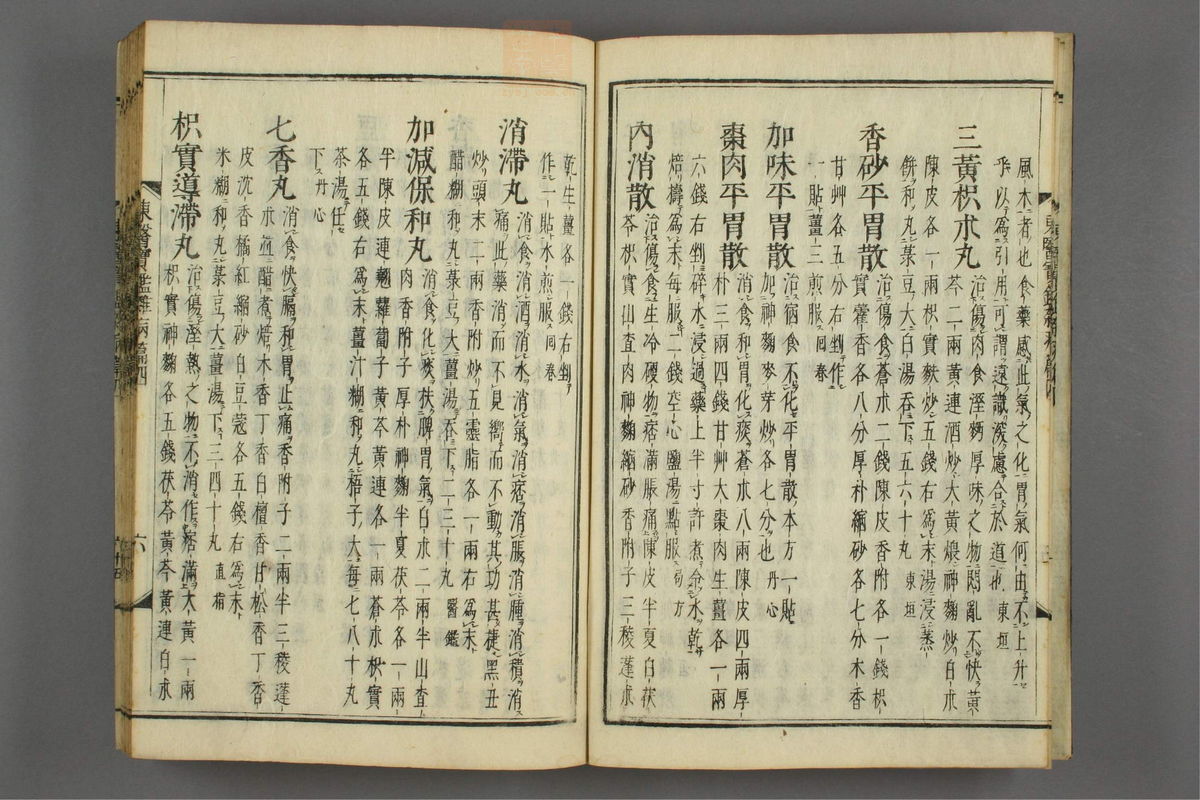 風木者也食藥感此氣之化胃氣何由不上升
乎以爲引用可謂遠識深慮合於道也東垣
三黃枳朮丸治傷肉食溼麪厚味之物悶亂不快黃
芩二兩黃連酒炒大黃煨神麴炒白朮
陳皮各一兩枳實麩炒五錢右爲末湯浸蒸
餠和丸菉豆大白湯吞下五六十丸東垣
香砂平胃散治傷食蒼朮二錢陳皮香附各一錢枳
實藿香各八分厚朴縮砂各七分木香
甘艸各五分右剉作
一貼薑三煎服回春
加味平胃散治宿食不化平胃散本方一貼
加神麴麥芽炒各七分也丹心
棗肉平胃散消食和胃化痰蒼朮八兩陳皮四兩厚
朴三兩四錢甘艸大棗肉生薑各一兩
六錢右剉碎水浸過藥上半寸許煮令水乾
焙擣爲末每服二錢空心鹽湯點服局方
內消散治傷食生冷硬物痞滿脹痛陳皮半夏白茯
苓枳實山查肉神麴縮砂香附子三稜蓬朮
乾生薑各一錢右剉
作一貼水煎服回春
消滯丸消食消酒消水消氣消痞消脹消腫消積消
痛此藥消而不見嚮而不動其功甚捷黑丑
炒頭末二兩香附炒五靈脂各一兩右爲末
醋糊和丸菉豆大薑湯吞下二三十丸醫鑑
加減保和丸消食化痰扶脾胃氣白朮二兩半山查
肉香附子厚朴神麴半夏茯苓各一兩
半陳皮連翹蘿蔔子黃芩黃連各一兩蒼朮枳實
各五錢右爲末薑汁糊和丸梧子大每七八十丸
茶湯任
下丹心
七香丸消食快膈和胃止痛香附子二兩半三稜蓬
朮並醋煮焙木香丁香白檀香甘松香丁香
皮沈香橘紅縮砂白豆蔻各五錢右爲末
米糊和丸菉豆大薑湯下三四十丸直指
枳實導滯丸治傷溼熱之物不消作痞滿大黃一兩
枳實神麴各五錢茯苓黃芩黃連白朮
東醫寶鑑雜病篇四
六